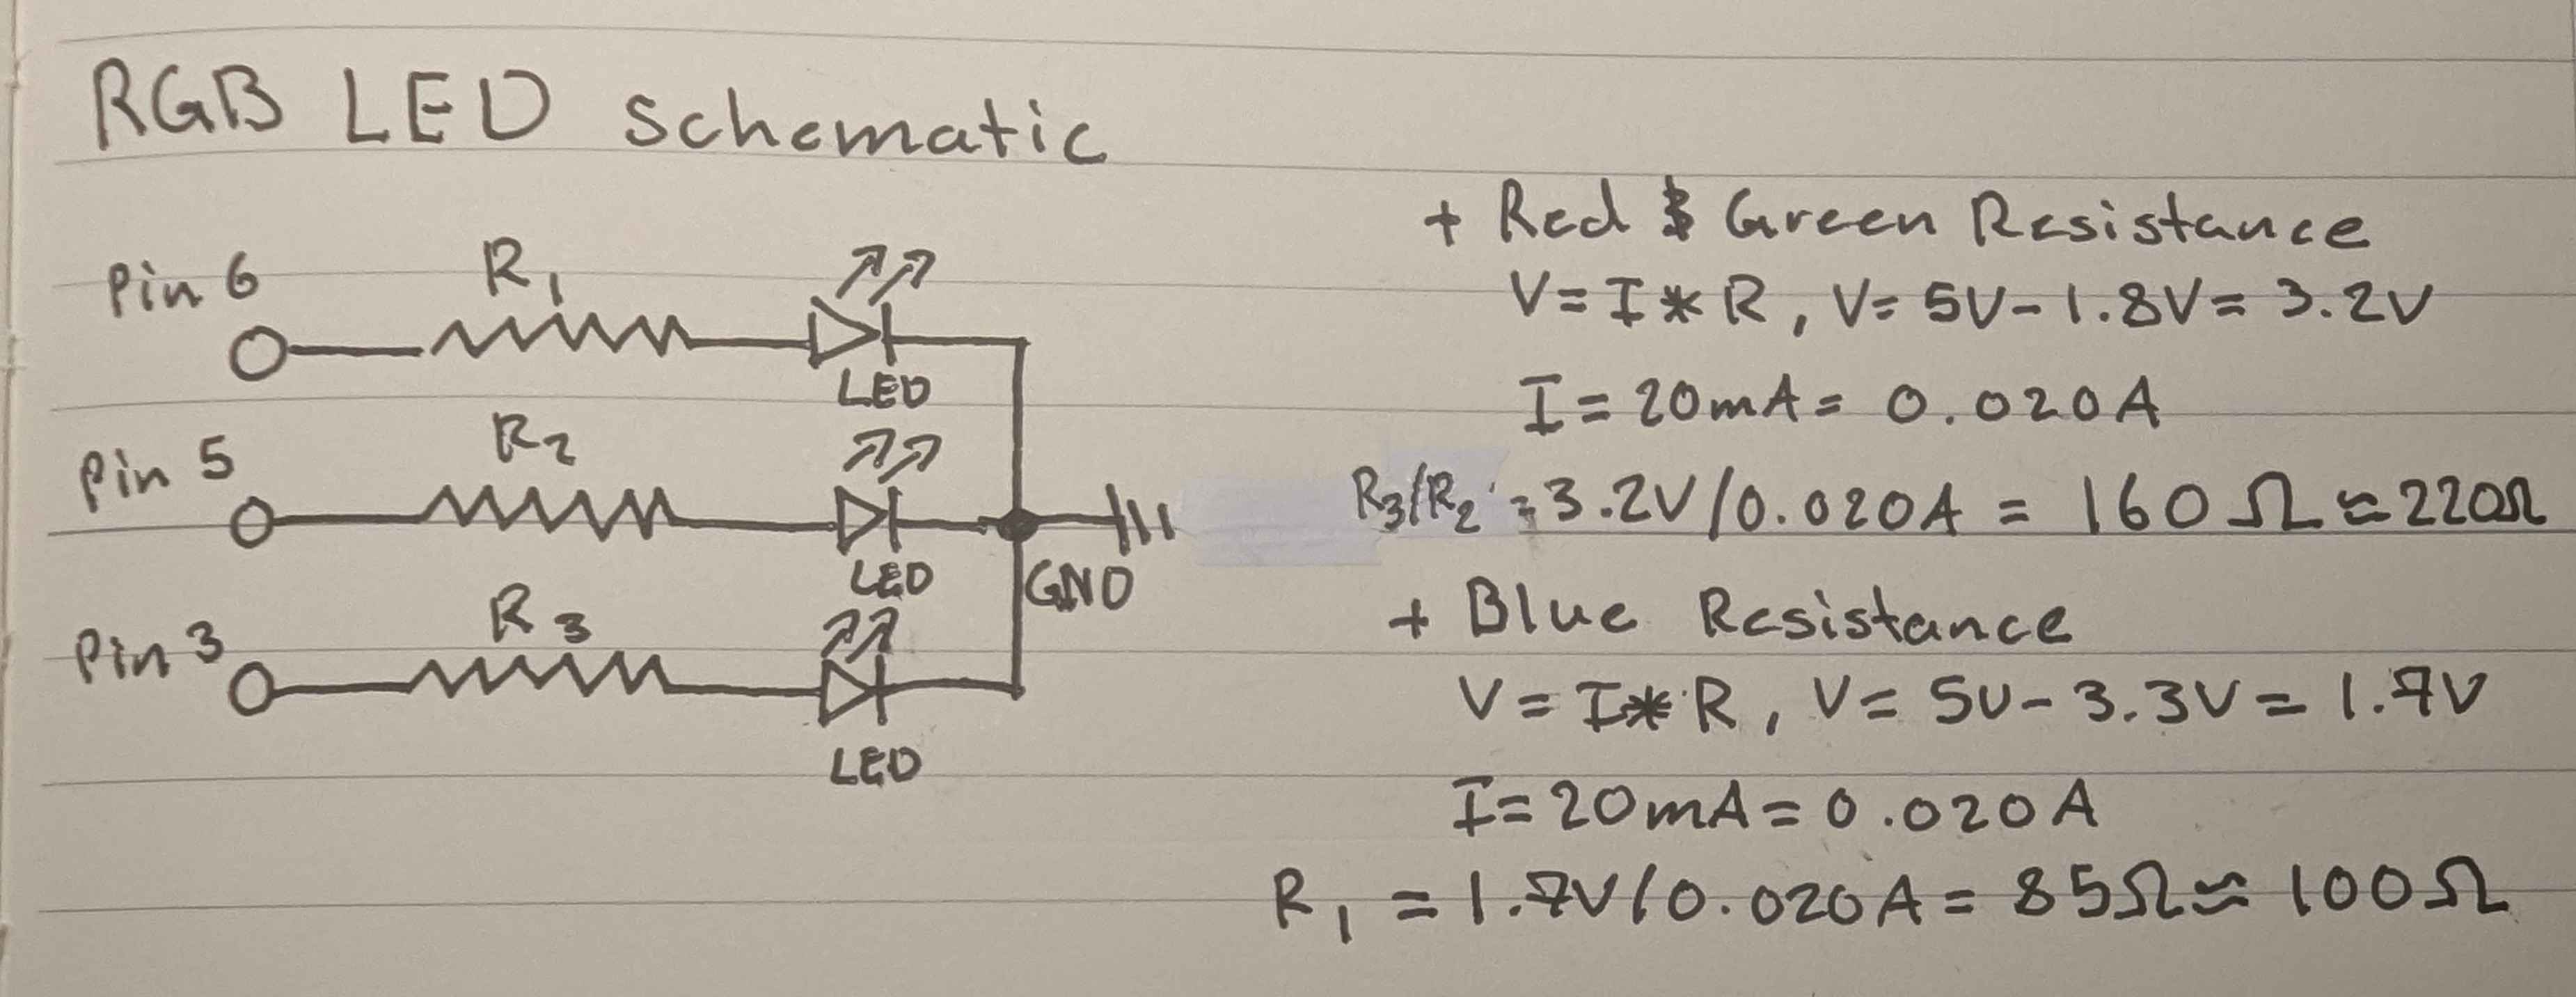 RGB LED Schematic
Pin 6
R1
LED
Pin 5
R2
LED
GND
Pin 3
R3
LED
+ Red & Green Resistance
V = I * R, V = 5V - 1.8V = 3.2V
I = 20mA = 0.020A
R3/R2 = 3.2V/0.020A = 160Ω ≈ 220Ω
+ Blue Resistance
V = I * R, V = 5V - 3.3V = 1.7V
I = 20mA = 0.020A
R1 = 1.7V/0.020A = 85Ω ≈ 100Ω